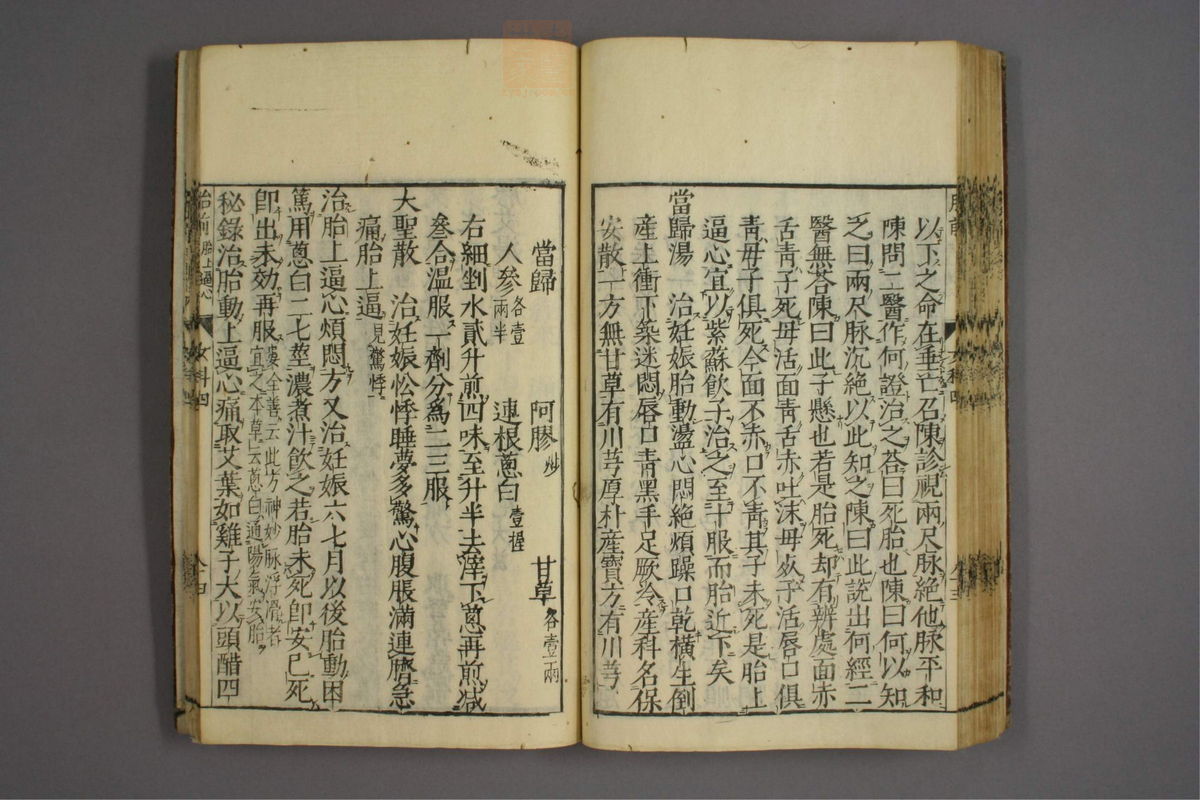 以下之命在垂亡召陳診視兩尺脉絶他脉平和
陳問二醫作何證治之荅曰死胎也陳曰何以知
之曰兩尺脉沉絶以此知之陳曰此說出何經二
醫無荅陳曰此子懸也若是胎死却有辨處面赤
舌青子死母活面青舌赤吐沫母死子活唇口俱
青母子俱死今面不赤口不青其子未死是胎上
逼心宜以紫蘇飲子治之至十服而胎近下矣
當歸湯　治妊娠胎動盪心悶絶煩躁口乾橫生倒
産上衝下築迷悶唇口青黑手足厥冷産科名保
安散一方無甘草有川芎厚朴産寶方有川芎
當歸　阿膠炒　甘草各壹兩
人參各壹兩半　連根蔥白壹握
右細剉水貳升煎四味至升半去滓下蔥再煎減
叁合溫服一劑分爲二三服
大聖散　治妊娠忪悸睡夢多驚心腹脹滿連臍急
痛胎上逼見驚悸
治胎上逼心煩悶方又治妊娠六七月以後胎動困
篤用蔥白二七莖濃煮汁飲之若胎未死卽安已死
卽出未効再服婁全善云此方神妙脉浮滑者宜之本草云蔥白通陽氣安胎
秘錄治胎動上逼心痛取艾葉如雞子大以頭醋四
胎前　胎上逼心　女科四　八四
胎前　女科四